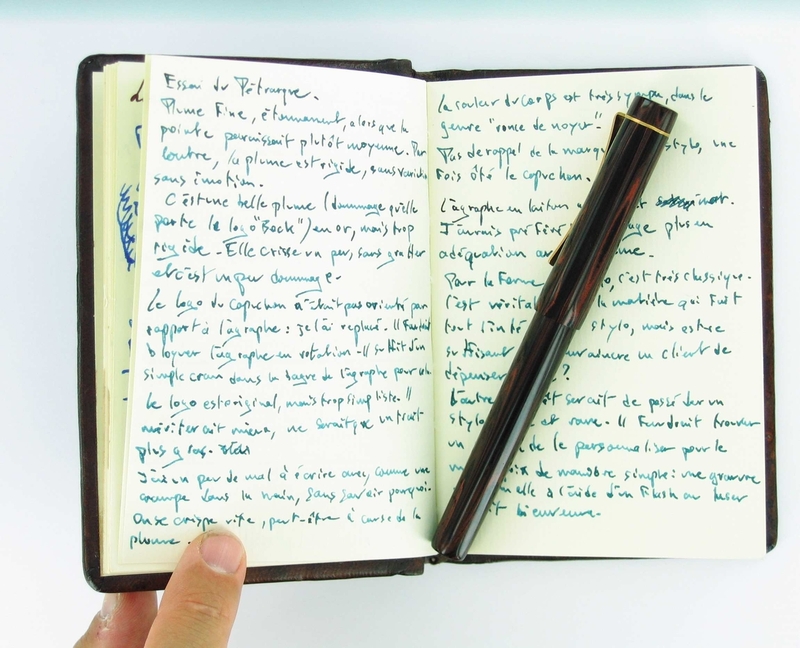 Essai du Pétrarque.
Plume Fine, étonnament, alors que la
pointe paraissait plutôt moyenne. Par
contre, la plume est rigide, sans
sans émotion.
C'est une belle plume (dommage qu'elle
porte le logo "Bock") en or, mais trop
rigide. Elle crisse un peu, sans gratter
et c'est un peu dommage.
Le logo du capuchon n'était pas orienté par
rapport à l'agraphe : je l'ai replacé. Il faudrait
bloquer l'agraphe en rotation - Il suffit d'un
simple cran dans la bague de l'agraphe pour cela.
Le logo est original, mais trop simpliste. Il
mériterait mieux, ne serait-ce qu'un trait
plus gros.
J'ai un peu de mal à écrire avec, comme une
crampe dans la main, sans savoir pourquoi.
On se crispe vite, peut-être à cause de la
plume.
La couleur du corps est très sympa, dans le
genre "ronce de noyer".
Pas de rappel de la marque stylo, une
fois ôté le capuchon.
L'agraphe en laiton
J'aurais préféré plus en
adéquation
Pour la forme c'est très classique.
C'est la matière qui fait
tout stylo, mais est-ce
suffisant un client de
dépenser ?
L'autre serait de posséder un
stylo et rare. Il faudrait trouver
un de le personnaliser pour le
de manière simple : une gravure
elle à l'aide d'un Flash ou laser
bienvenue.